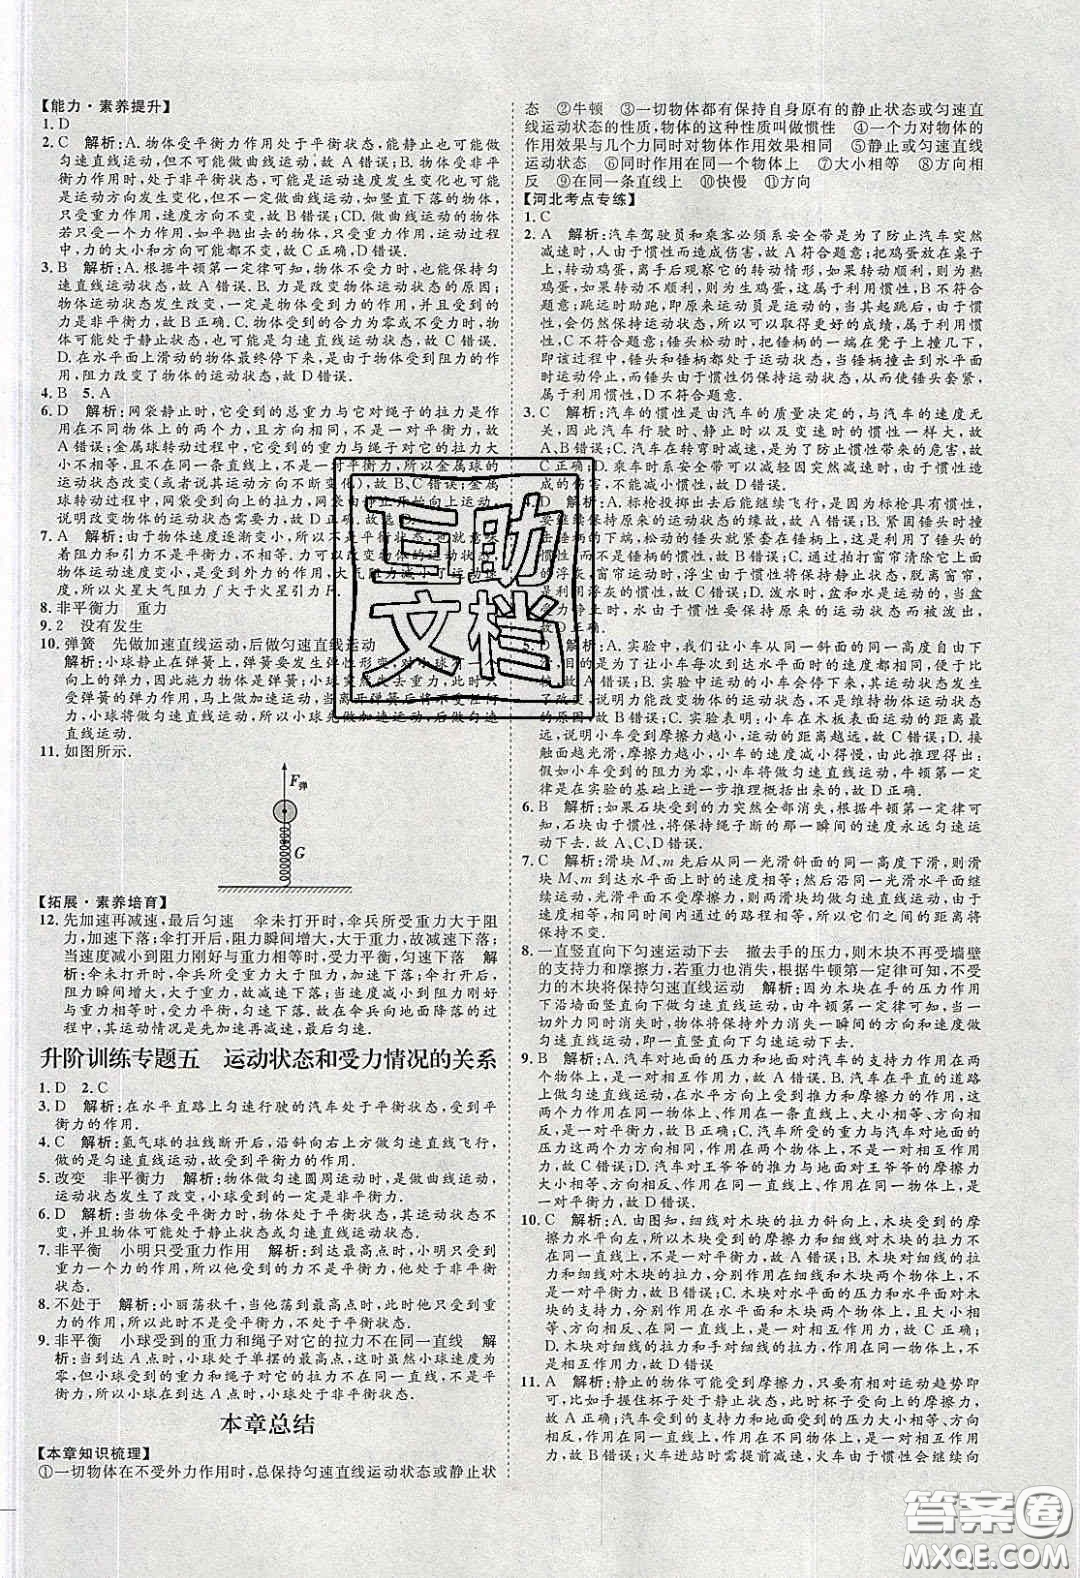 【能力·素养提升】
1. D
2. C 解析:A. 物体受平衡力作用处于平衡状态,能静止也可能做
匀速直线运动,不可能做曲线运动,故A错误;B. 物体受非平
衡力作用时,处于非平衡状态,可能是运动速度发生变化也可能
是运动方向发生变化,但不一定是曲线运动,如竖直下落的物体,
只受重力作用,速度方向不变,故B错误;CD. 做曲线运动的物体
若只受一个力作用,如平抛出去的小球,只受重力作用,运动过程
中,力的大小和方向可能都不变,故C正确,D错误.
3. B 解析:A. 根据牛顿第一定律可知,物体不受力时,也能保持匀
速直线运动状态,故A错误;B. 力是改变物体运动状态的原因;
物体运动状态发生改变,一定是物体受到力的作用,并且受到的
力是非平衡力,故B正确;C. 物体受到的合力为零或不受力时,
物体可能处于静止状态,也可能是匀速直线运动状态,故C错误;
D. 在水平面上滑动的物体最终停下来,是由于受到阻力的作用,
阻力改变了物体的运动状态,故D错误.
4. B 5. A
6. D 解析:网袋静止时,它受到的总重力与它对绳子的拉力是作
用在不同物体上的两个力,且方向相同,不是一对平衡力,故
A错误;金属球转动过程中,它受到的重力与绳子对它的拉力大
小不相等,且不在同一条直线上,不是一对平衡力,所以金属球的
运动状态改变(或者说其运动状态不断变化),故B、C错误;金属
球转动过程中,网袋受到向上的拉力,网袋由静止开始向上运动,
说明改变物体的运动状态需要力,故D正确.
7. A 解析:由于物体速度逐渐变小,所以不是平衡状态,也就意味
着阻力和引力不是平衡力,不是匀速运动.力可以改变物体的运动状态,
物体速度变小,是由于阻力的作用,大气阻力对它的作用大于火星引力,
所以火星大气阻力f大于火星引力F.
8. 非平衡力 重力
9. 2 没有发生
10. 弹簧 先做加速直线运动,后做匀速直线运动
解析:小球静止在弹簧上,弹簧要发生弹性形变,对小球施加一个
向上的弹力,因此施力物体是弹簧.小球突然失去重力时,只
受弹簧的弹力作用,马上做加速运动,当离开弹簧时不受任何
力,小球将做匀速直线运动,所以小球先做加速运动,后做匀速
直线运动.
11. 如图所示.
F弹
G
【拓展·素养培育】
12. 先加速再减速,最后匀速 伞未打开时,伞兵所受重力大于阻
力,加速下落;伞打开后,阻力瞬间增大,大于重力,故减速下落;
当速度减小到阻力刚好与重力相等时,受力平衡,匀速下落 解
析:伞未打开时,伞兵所受重力大于阻力,故加速下落;伞打开后,
阻力瞬间增大,大于重力,故减速下落;当速度减小到阻力刚好
与重力相等时,受力平衡,匀速下落.故伞兵向地面降落的过程
中,其运动情况是先加速再减速,最后匀速.
升阶训练专题五 运动状态和受力情况的关系
1. D 2. C
3. D 解析:在水平直路上匀速行驶的汽车处于平衡状态,受到平
衡力的作用.
4. C 解析:氢气球的拉线断开后,沿斜向右上方做匀速直线飞行,
做的是匀速直线运动,故受到平衡力的作用.
5. 改变 非平衡力 解析:物体做匀速圆周运动时,运动状态改变,
运动状态发生了改变,小球受到的一定是非平衡力.
6. D 解析:当物体受平衡力时,物体处于平衡状态,其运动状态不
变,并且物体可能处于静止状态或匀速直线运动状态,故D正确.
7. 非平衡 小明只受重力作用 解析:到达最高点时,小明只受到
重力一个力的作用,所以他受到的力不能平衡,因此处于非平衡
状态.
8. 不处于 解析:小丽荡秋千,当荡到最高点时,此时他只受到重
力的作用,不可能受力平衡,因此此时他不处于平衡状态.
9. 非平衡 小球受到的重力和绳子对它的拉力不在同一直线 解
析:当到达A点时,小球处于单摆的最高点,这时虽然小球速度为
零,但小球受到的重力和绳子对它的拉力不在同一直线,不是平
衡力,则到达A点时,小球处于非平衡状态.
本章总结
【本章知识梳理】
①一切物体在不受外力作用时,总保持匀速直线运动状态或静止状
态 ②牛顿 ③一切物体都有保持自身原有的静止状态或匀速直
线运动状态的性质,物体的这种性质叫做惯性 ④一个力对物体的
作用效果与几个力同时对物体作用效果相同 ⑤静止或匀速直线
运动状态 ⑥同时作用在同一个物体上 ⑦大小相等 ⑧方向相
反 ⑨在同一条直线上 ⑩快慢 ⑪方向
【河北考点专练】
1. C
2. A 解析:汽车驾驶员和乘客必须系安全带是为了防止汽车突然
减速时,人由于惯性而造成伤害,故A符合题意;把鸡蛋放在桌子
上,转动鸡蛋,离手后观察它的转动情形,如果转动顺利,则为熟
鸡蛋,如果转动不顺利,则为生鸡蛋,这属于利用惯性,B不符合
题意;跳远时助跑,即原来运动员是运动的,当其起跳后,由于惯
性,仍然保持运动状态,所以可以取得更好的成绩,属于利用惯性,
C不符合题意;锤头松动时,把锤柄的一端在凳子上撞击几下,
即该过程中,锤头和锤柄都处于运动状态,当锤柄撞击在水平面
时运动停止,而锤头由于惯性仍保持运动状态,所以锤头会套紧,
属于利用惯性,D不符合题意.
3. C 解析:汽车的惯性是由汽车的质量决定的,与汽车的速度无
关,因此汽车行驶时、静止时以及变速时的惯性一样大,故
A、B错误;C. 汽车在转弯时减速,是为了防止惯性带来的危害,故
C正确;D. 乘车时系安全带可以减小惯性造
成的伤害,不能减小惯性,故D错误.
4. D 解析:A. 标枪投掷出去后能继续飞行,是因为标枪具有惯性,
要继续保持原来的运动状态的缘故,故A错误;B. 紧固锤头时撞
击锤柄的下端,松动的锤头就紧套在锤柄上,是由于锤头具有惯性,
不是克服锤头的惯性,故B错误;C. 通过拍打窗帘清除它上面
的浮灰时,是由于惯性,浮尘由于惯性将保持静止状态,脱离窗帘,
是利用浮灰的惯性,故C错误;D. 泼水时,盆和水都是运动的,
盆停止运动,水由于惯性继续保持原来的运动状态而被泼出,故
D正确.
5. D 解析:A. 实验中,我们让小车从同一斜面的同一高度自由下
滑,目的是为了让小车每次到达水平面时的速度都相同,便于比
较,故A错误;B. 实验中,运动的小车会停下来,其运动状态发生
了改变,说明力能改变物体的运动状态,不是维持物体运动状态
的原因,故B错误;C. 实验表明:小车在木板表面运动的距离最
远,说明小车受到摩擦力越小,运动的距离越远,故C错误;D. 接
触面越光滑,摩擦力越小,小车的速度减小得慢,由此推理得出:
假如小车受到的阻力为零,小车将做匀速直线运动,牛顿第一定
律是在实验的基础上进一步推理概括出来的,故D正确.
6. B 解析:如果石块受到的力突然全部消失,根据牛顿第一定律可
知,石块由于惯性,将保持绳子断的那一瞬间的速度永远匀速运
动下去.故A、C、D错误.
7. C 解析:滑块M、m先后从同一光滑斜面的同一高度下滑,则滑
块M、m到达水平面时的速度相等,然后沿光滑水平面向前运
动,由于水平面光滑没有摩擦,则两滑块均做匀速运动,由于速度
相等,相同时间内通过的路程相等,所以在水平面上两者间距将
保持不变.
8. 一直竖直向下匀速运动下去 撤去手的压力,则木块不再受墙壁
的支持力和摩擦力,若重力也消失,根据牛顿第一定律可知,不受
力的木块将保持匀速直线运动 解析:因为木块在手的压力作用
下沿墙面竖直向下做匀速直线运动,由牛顿第一定律可知,当受
到的外力同时消失时,木块将保持外力消失那一瞬间的速度匀速
运动下去,即竖直向下做匀速直线运动.
9. B 解析:A. 汽车对地面的压力与地面对汽车的支持力作用在两
个物体上,不是一对平衡力,故A错误;B. 汽车在平直的道路
上做匀速直线运动,汽车受到推力和摩擦力的作用,这
两个力作用在同一物体上、作用在一条直线上、大小相等、方向
相反,是一对平衡力,故B正确;C. 汽车所受的重力与汽车对地面
的压力这两个力方向相同,作用在不同的物体上,不是相互作用
力,故C错误;D. 汽车对王爷爷的推力与地面对汽车的摩擦力
大小相等、方向相同、作用在两个物体上,不在同一直线上,不
是一对平衡力,故D错误.
10. C 解析:A. 由图知,细线对木块的拉力斜向上,木块受到的摩
擦力水平向左,所以木块受到的摩擦力和细线对木块的拉力不
在同一直线上,不是一对平衡力,故A错误;B. 木块对细线的拉
力和细线对木块的拉力,分别作用在细线和木块两个物体上,不
是一对平衡力,故B错误;C. 木块对水平面的压力和水平面对木
块的支持力,分别作用在水平面和木块两个物体上,大小相等、
方向相反、在同一直线上,是一对相互作用力,故C正确;
D. 木块对细线的拉力和手对细线的拉力,都作用在细线上,
不是相互作用力,故D错误
11. A 解析:静止的物体可能受到摩擦力,只要有相对运动趋势即
可,比如手握住杯子处于静止状态时,杯子受到向上的摩擦力,
故A正确;火车进站时受到的支持力大小与压力大小有关,
故B错误;火车进站时需要减速,这时火车受到的摩擦力的方向
互助
文档
答案圈
MXQE.COM